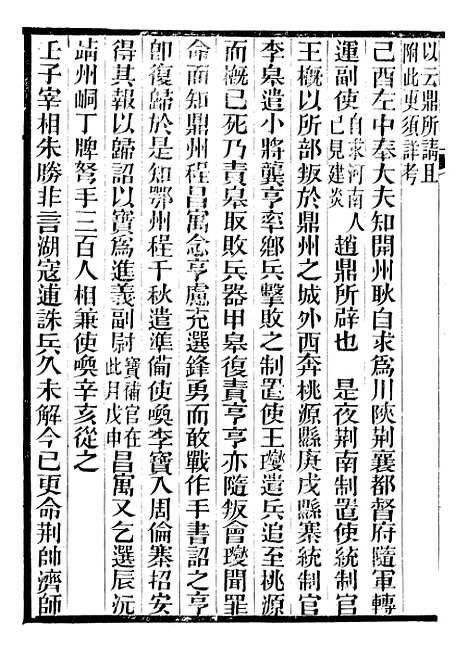 以云鼎所請且
附此更須詳考
己酉左中奉大夫知開州耿自求爲川陝荆襄都督府隨軍轉
運副使自求河南人已見建炎趙鼎所辟也　是夜荆南制置使統制官
王概以所部叛於鼎州之城外西奔桃源縣庚戌縣寨統制官
李臯遣小將龔亨率鄉兵擊敗之制置使王𤫉遣兵追至桃源
而概已死乃責臯取敗兵器甲臯復責亨亨亦隨叛會𤫉聞罪
命而知鼎州程昌寓念亨處充選鋒勇而敢戰作手書詔之亨
卽復歸於是知鄂州程千秋遣準備使喚李寶入周倫寨招安
得其報以歸詔以寶爲進義副尉寶補官在此月戊申昌寓又乞選辰沅
靖州峒丁牌弩手三百人相兼使喚辛亥從之
壬子宰相朱勝非言湖寇逋誅兵久未解今已更命荆帥濟師